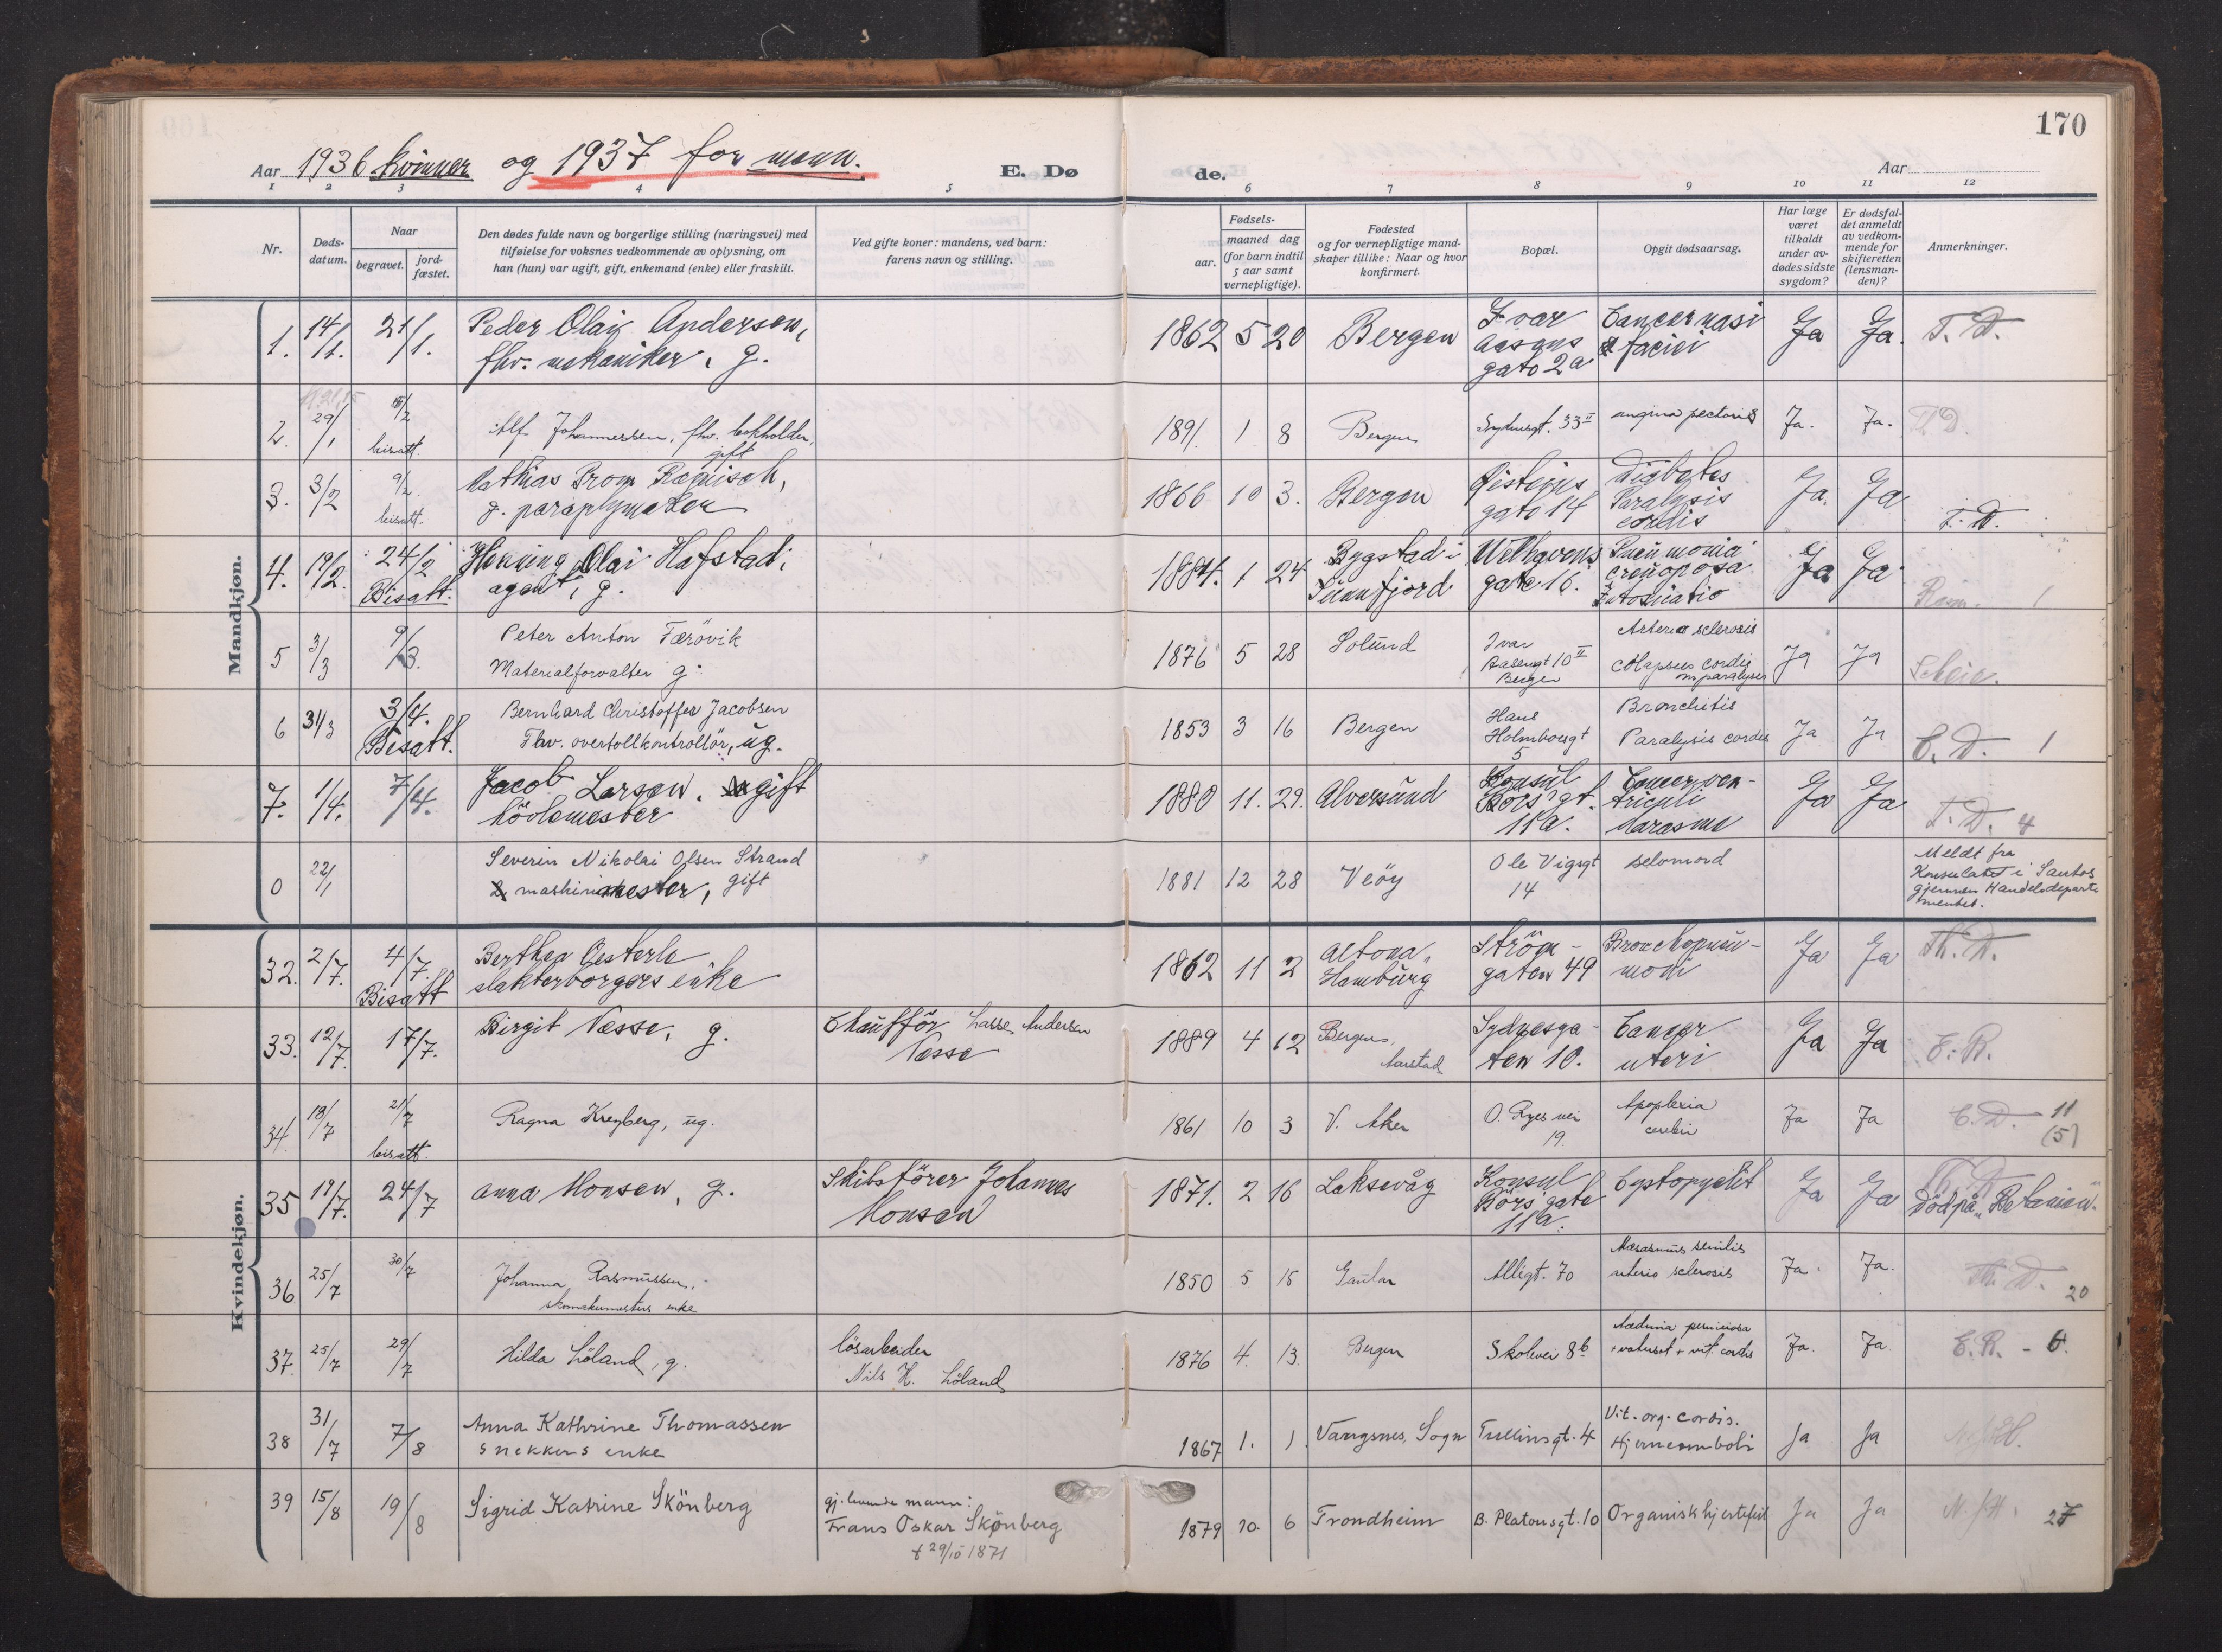 170
Aar 1936 kvinner og 1937 for menn.
E. Døde.
Aar
1 2 3 4 5 6 7 8 9 10 11 12
Nr.
Døds-
datum.
Naar
begravet.
jord-
fæstet.
Den dødes fulde navn og borgerlige stilling (næringsvei) med
tilføielse for voksnes vedkommende av oplysning, om
han (hun) var ugift, gift, enkemand (enke) eller fraskilt.
Ved gifte koner: mandens, ved barn:
farens navn og stilling.
Fødsels-
aar.
maaned dag
(for barn indtil
5 aar samt
vernepligtige).
Fødested
og for vernepligtige mand-
skaper tillike: Naar og hvor
konfirmert.
Bopæl.
Opgit dødsaarsag.
Har læge
været
tilkaldt
under av-
dødes sidste
sygdom?
Er dødsfal-
det anmeldt
av vedkom-
mende for
skifteretten
(lensman-
den)?
Anmerkninger.
Mandkjøn.
1. 14/1. 21/1. Peder Olai Andersen,
fhv. mekaniker, g.
1862 5 20 Bergen
Ivar
Aasens
gate 2a
Cancer nasi
& faciei
Ja Ja. T. D.
2. 29/1 /2
bisatt.
Alf Johannessen, fhv. bokholder,
gift
1891. 1 8 Bergen Sydnesgt. 33 II angina pectoris Ja. Ja. T. D.
3. 3/2 9/2.
bisatt.
Mathias Brom
g. paraplymaker
1866 10 3. Bergen
Øisteins
gate 14
Diabetes
Paralysis
cordis
Ja. Ja T. D.
4. 19/2. 24/2
Bisatt.
Henning Olai Hafstad,
agent, g.
1884. 1 24
Bygstad i
Sunnfjord
Welhavens
gate 16.
Pneumonia
crouposa
Intoxicatio
Ja Ja 1
5 3/3 9/3.
Peter Anton Færövik
Materialforvalter g.
1876 5 28 Solund
Ivar
Aasengt 10 II
Bergen
Arterio sclerosis
collapsus cordis
m paralysis
Ja Ja
6 31/3 3/4.
Bisatt.
Bernhard Christoffer Jacobsen
Fhv. overtollkontrollör, ug.
1853 3 16 Bergen
Hans
Holmboesgt
5
Bronchitis
Paralysis cordis
Ja Ja C. D. 1
7. 1/4. 7/4.
Jacob Larsen. gift
hövlemester
1880 11. 29. Alversund
Konsul
Börs' gt.
11a.
Cancer ven-
triculi
Marasme
Ja Ja T. D. 4
0 22/1
Severin Nikolai Olsen Strand
maskinmester, gift
1881 12 28 Veöy
Ole Vigsgt
14
selvmord
Meldt fra
Konsulatet i Santos
gjennem Handelsdeparte
mentet.
Kvindekjøn.
32. 2/7. 4/7.
Bisatt
Berthea Oesterle
slakterborgers enke
1862 11 2
Altona,
Hamburg
Ström-
gaten 49
Bronchopneu-
moni
Ja Ja Th. D.
33. 12/7. 17/7. Birgit Næsse, g.
Chaufför Lasse Andersen
Næsse
1889 4 12
Bergen,
Aarstad
Sydnesga-
ten 10.
Cancer
uteri
Ja Ja E. R.
34. 18/7 21/7
bisatt.
Ragna Kreyberg, ug.
1861 10 3 V. Aker
O. Ryes vei
19.
Apoplexia
cerebri
Ja Ja C. D. 11
(5)
35 19/7. 24/7 Anna Monsen, g.
Skibsförer Johannes
Monsen
1871. 2 16 Laksevåg
Konsul
Börs' gate
11a.
Cystopyelit
Ja Ja Th. D
Död på "Betanien".
36 25/7 30/7
Johanna Rasmussen,
skomakermesters enke
1850 5 15 Gaular Alleigt. 70
Marasmus senilis
arterio sclerosis
Ja. Ja. Th. D. 20
37. 25/7 29/7 Hilda Löland, g.
lösarbeider
Nils H. Löland
1876 4. 13. Bergen Skolevei 8b
Anæmia perniciosa
+ vit. cordis
Ja. Ja. E. R. - 6.
38 31/7 7/8
Anna Kathrine Thomassen
snekkers enke
1867 1. 1. Vangsnes, Sogn Tullinsgt. 4
Vit. org. cordis.
Hjerneemboli
Ja Ja
39 15/8 19/8 Sigrid Katrine Skönberg
gj.levende mann:
Frans Oskar Skönberg
f 29/10 1871
1879 10. 6 Trondheim B. Platousgt. 10 Organisk hjertefeil Ja Ja 27